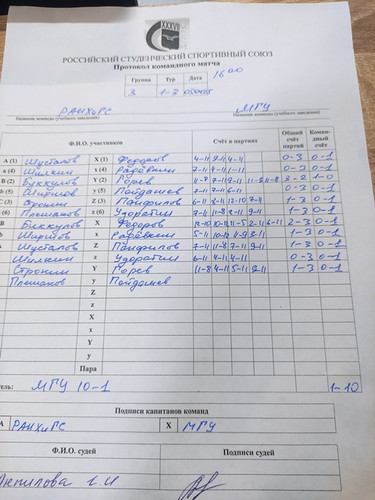 XXXVII
РОССИЙСКИЙ СТУДЕНЧЕСКИЙ СПОРТИВНЫЙ СОЮЗ
Протокол командного матча
Группа Тур Дата 16 00
3 1-2
РАНХиГС МГУ
Название команды (учебного заведения) Название команды (учебного заведения)
Ф.И.О. участников Счёт в партиях Общий счёт партий Командный счёт
A (1) Шусталов X (1) Федоров 4-11 9-11 4-11 0-3 0-1
(4) Шилкин x (4) 7-11 9-11 0-3 0-1
B (2) Буккулов Y (2) Горев 11-8 7-11 11-5 11-8 3-2 1-0
b (5) y (5) Пойдашев 7-11 7-11 6-11 0-3 0-1
C (3) Строкин Z (3) Панфилов 6-11 6-11 12-10 7-11 1-3 0-1
(6) Плешаков z (6) Удоратин 7-11 11-8 3-11 9-11 1-3 0-1
B Биккулов X Федоров 10-11 11-5 2-11 6-11 2-3 0-1
b x 5-11 10-12 11-9 3-11 1-3 0-1
Шусталов Z Панфилов 7-11 11-8 7-11 9-11 1-3 0-1
Шилкин z Удоратин 6-11 4-11 4-11 0-3 0-1
Строкин Y Горев 11-8 4-11 5-11 9-11 1-3 0-1
Плешаков y Пойдашев
Z
z
X
x
Y
y
Пара
МГУ 10-1 1-10
Подписи капитанов команд
A РАНХиГС X МГУ
Ф.И.О. судей Подписи судей